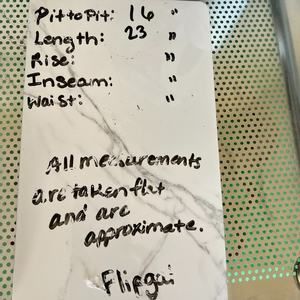 Pit to Pit: 16 "
Length: 23 "
Rise: "
Inseam: "
Waist: "
All measurements
are taken flat
and are
approximate.